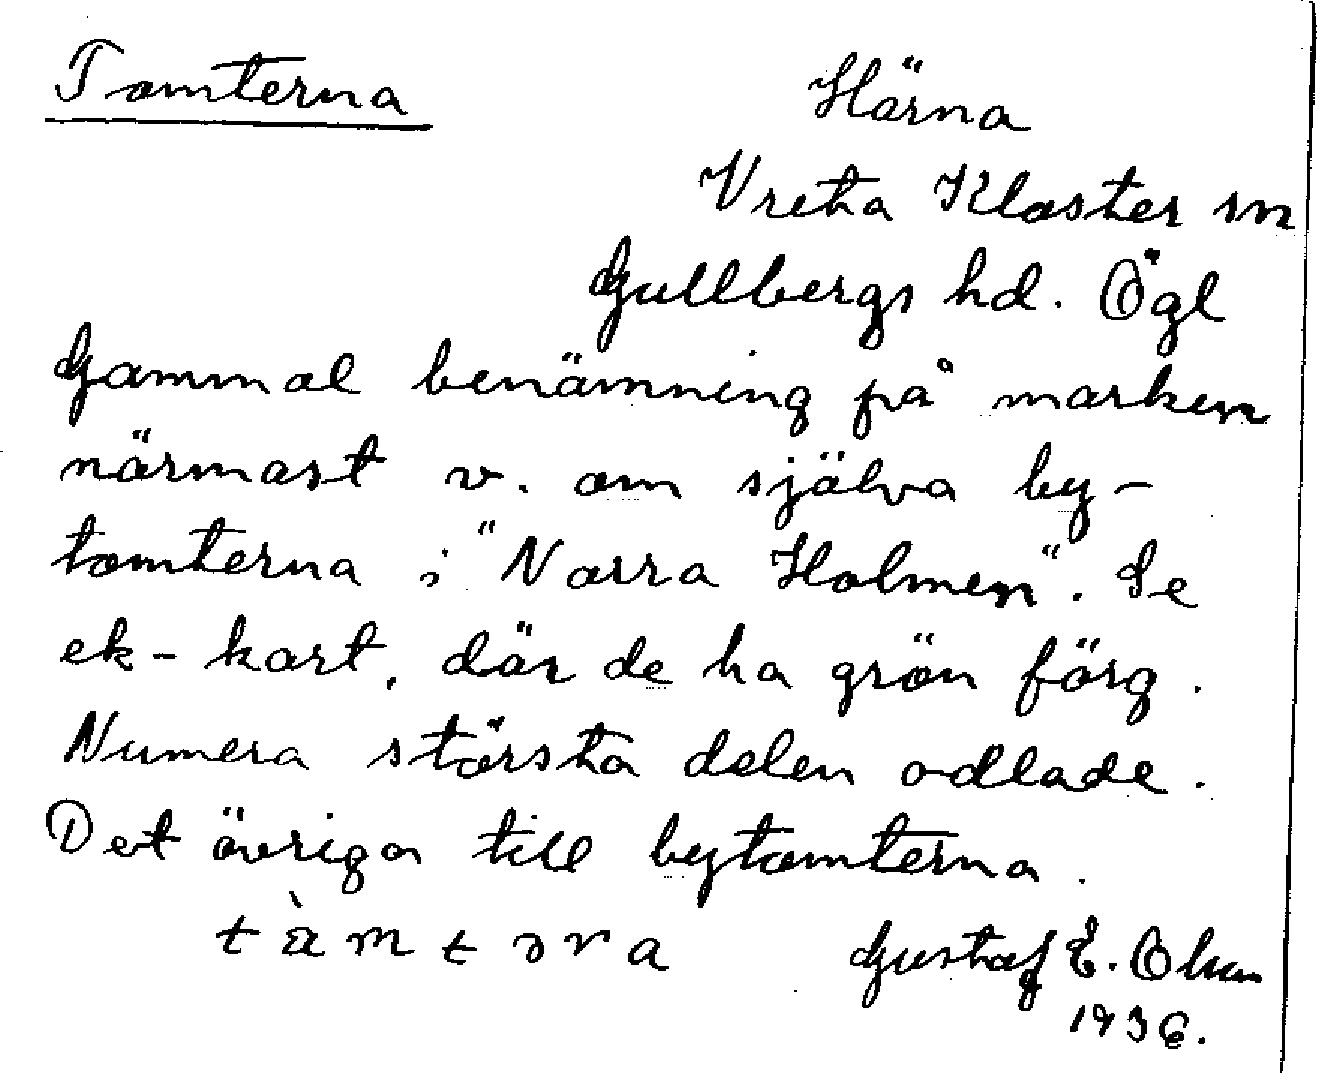 Tomterna
Härna
Vreta Kloster sn
Gullbergs hd. Ögl
Gammal benämning på marken
närmast v. om själva by-
tomterna i "Norra Holmen". Se
ek-kart, där de ha grön färg.
Numera största delen odlade.
Det övriga till bytomterna.
Gustaf E. Olsson
1936.